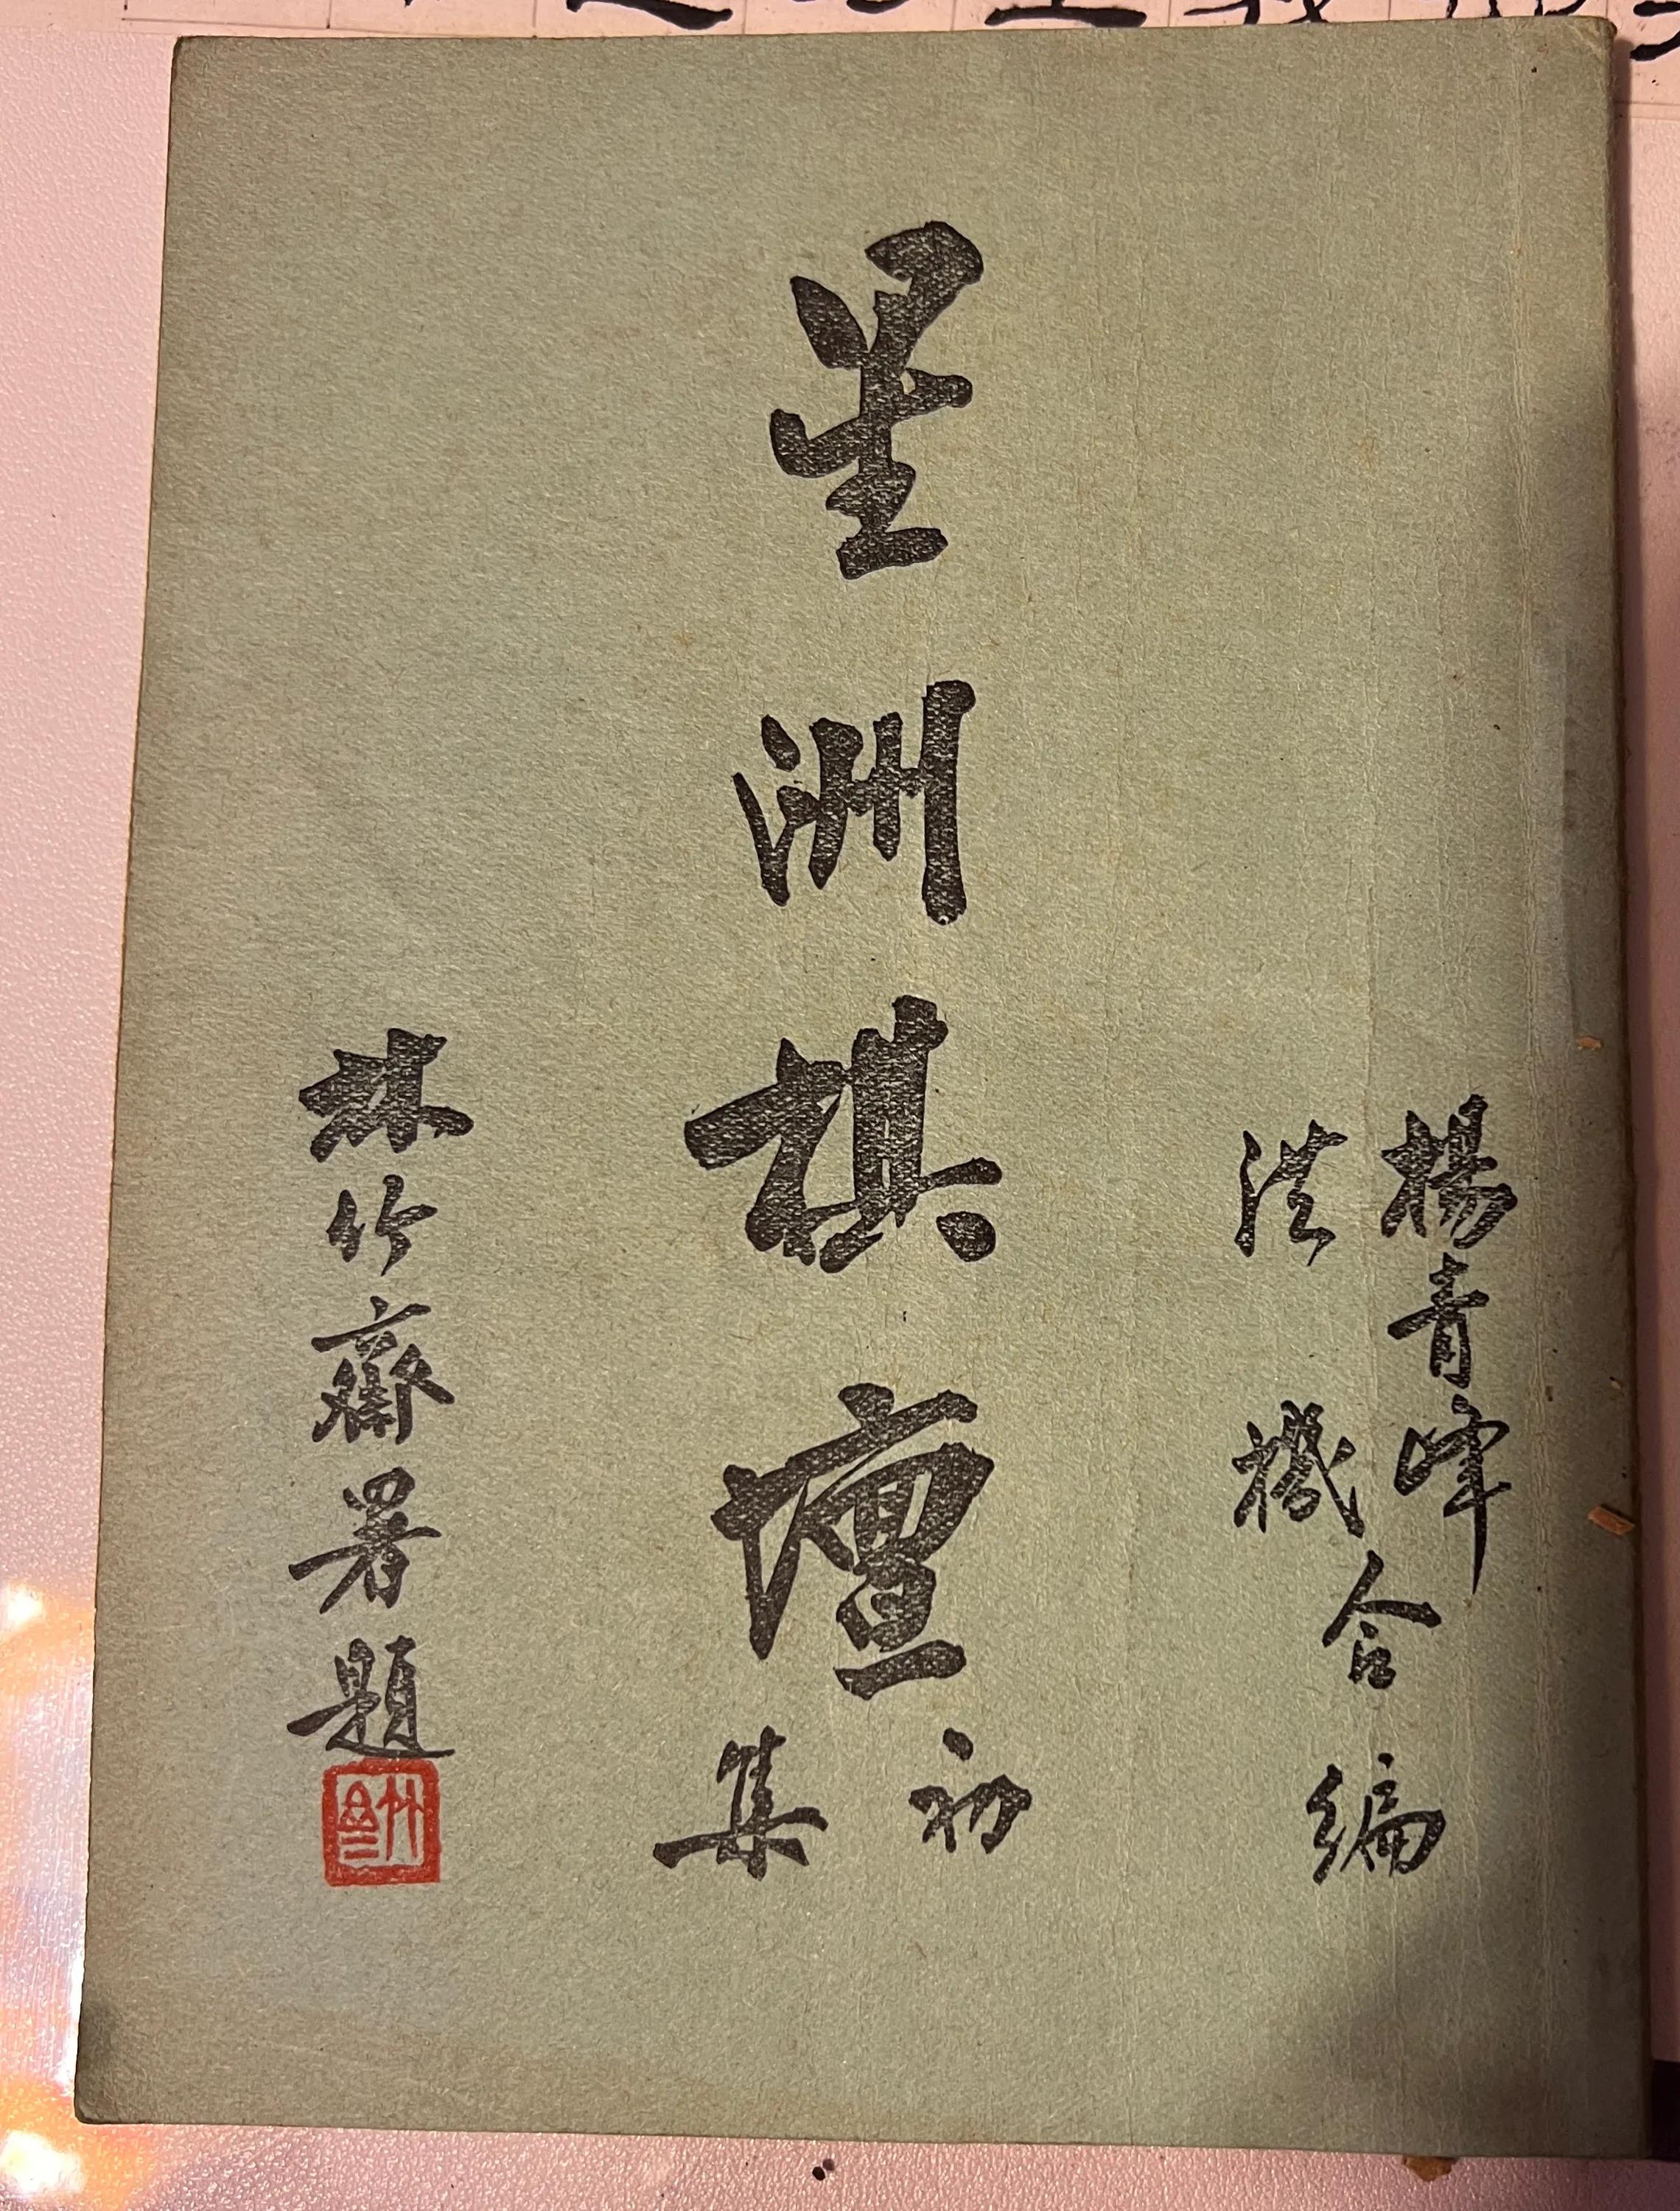 楊青峰
洪機
合編
星洲棋壇
初集
林竹齋署題